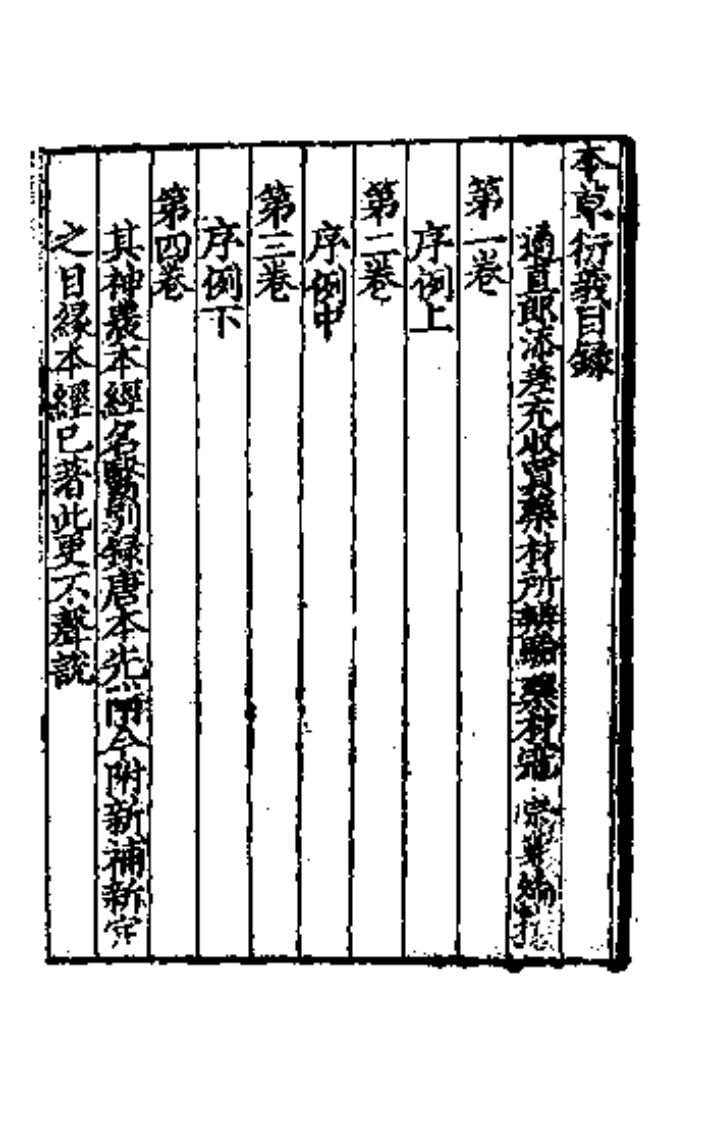 本草衍義目録
通直郎添差充收買藥材所辨驗藥材寇宗奭編撰
第一卷
序例上
第二卷
序例中
第三卷
序例下
第四卷
其神農本經名醫別録唐本先附今附新補新定
之目緣本經已著此更不聲說